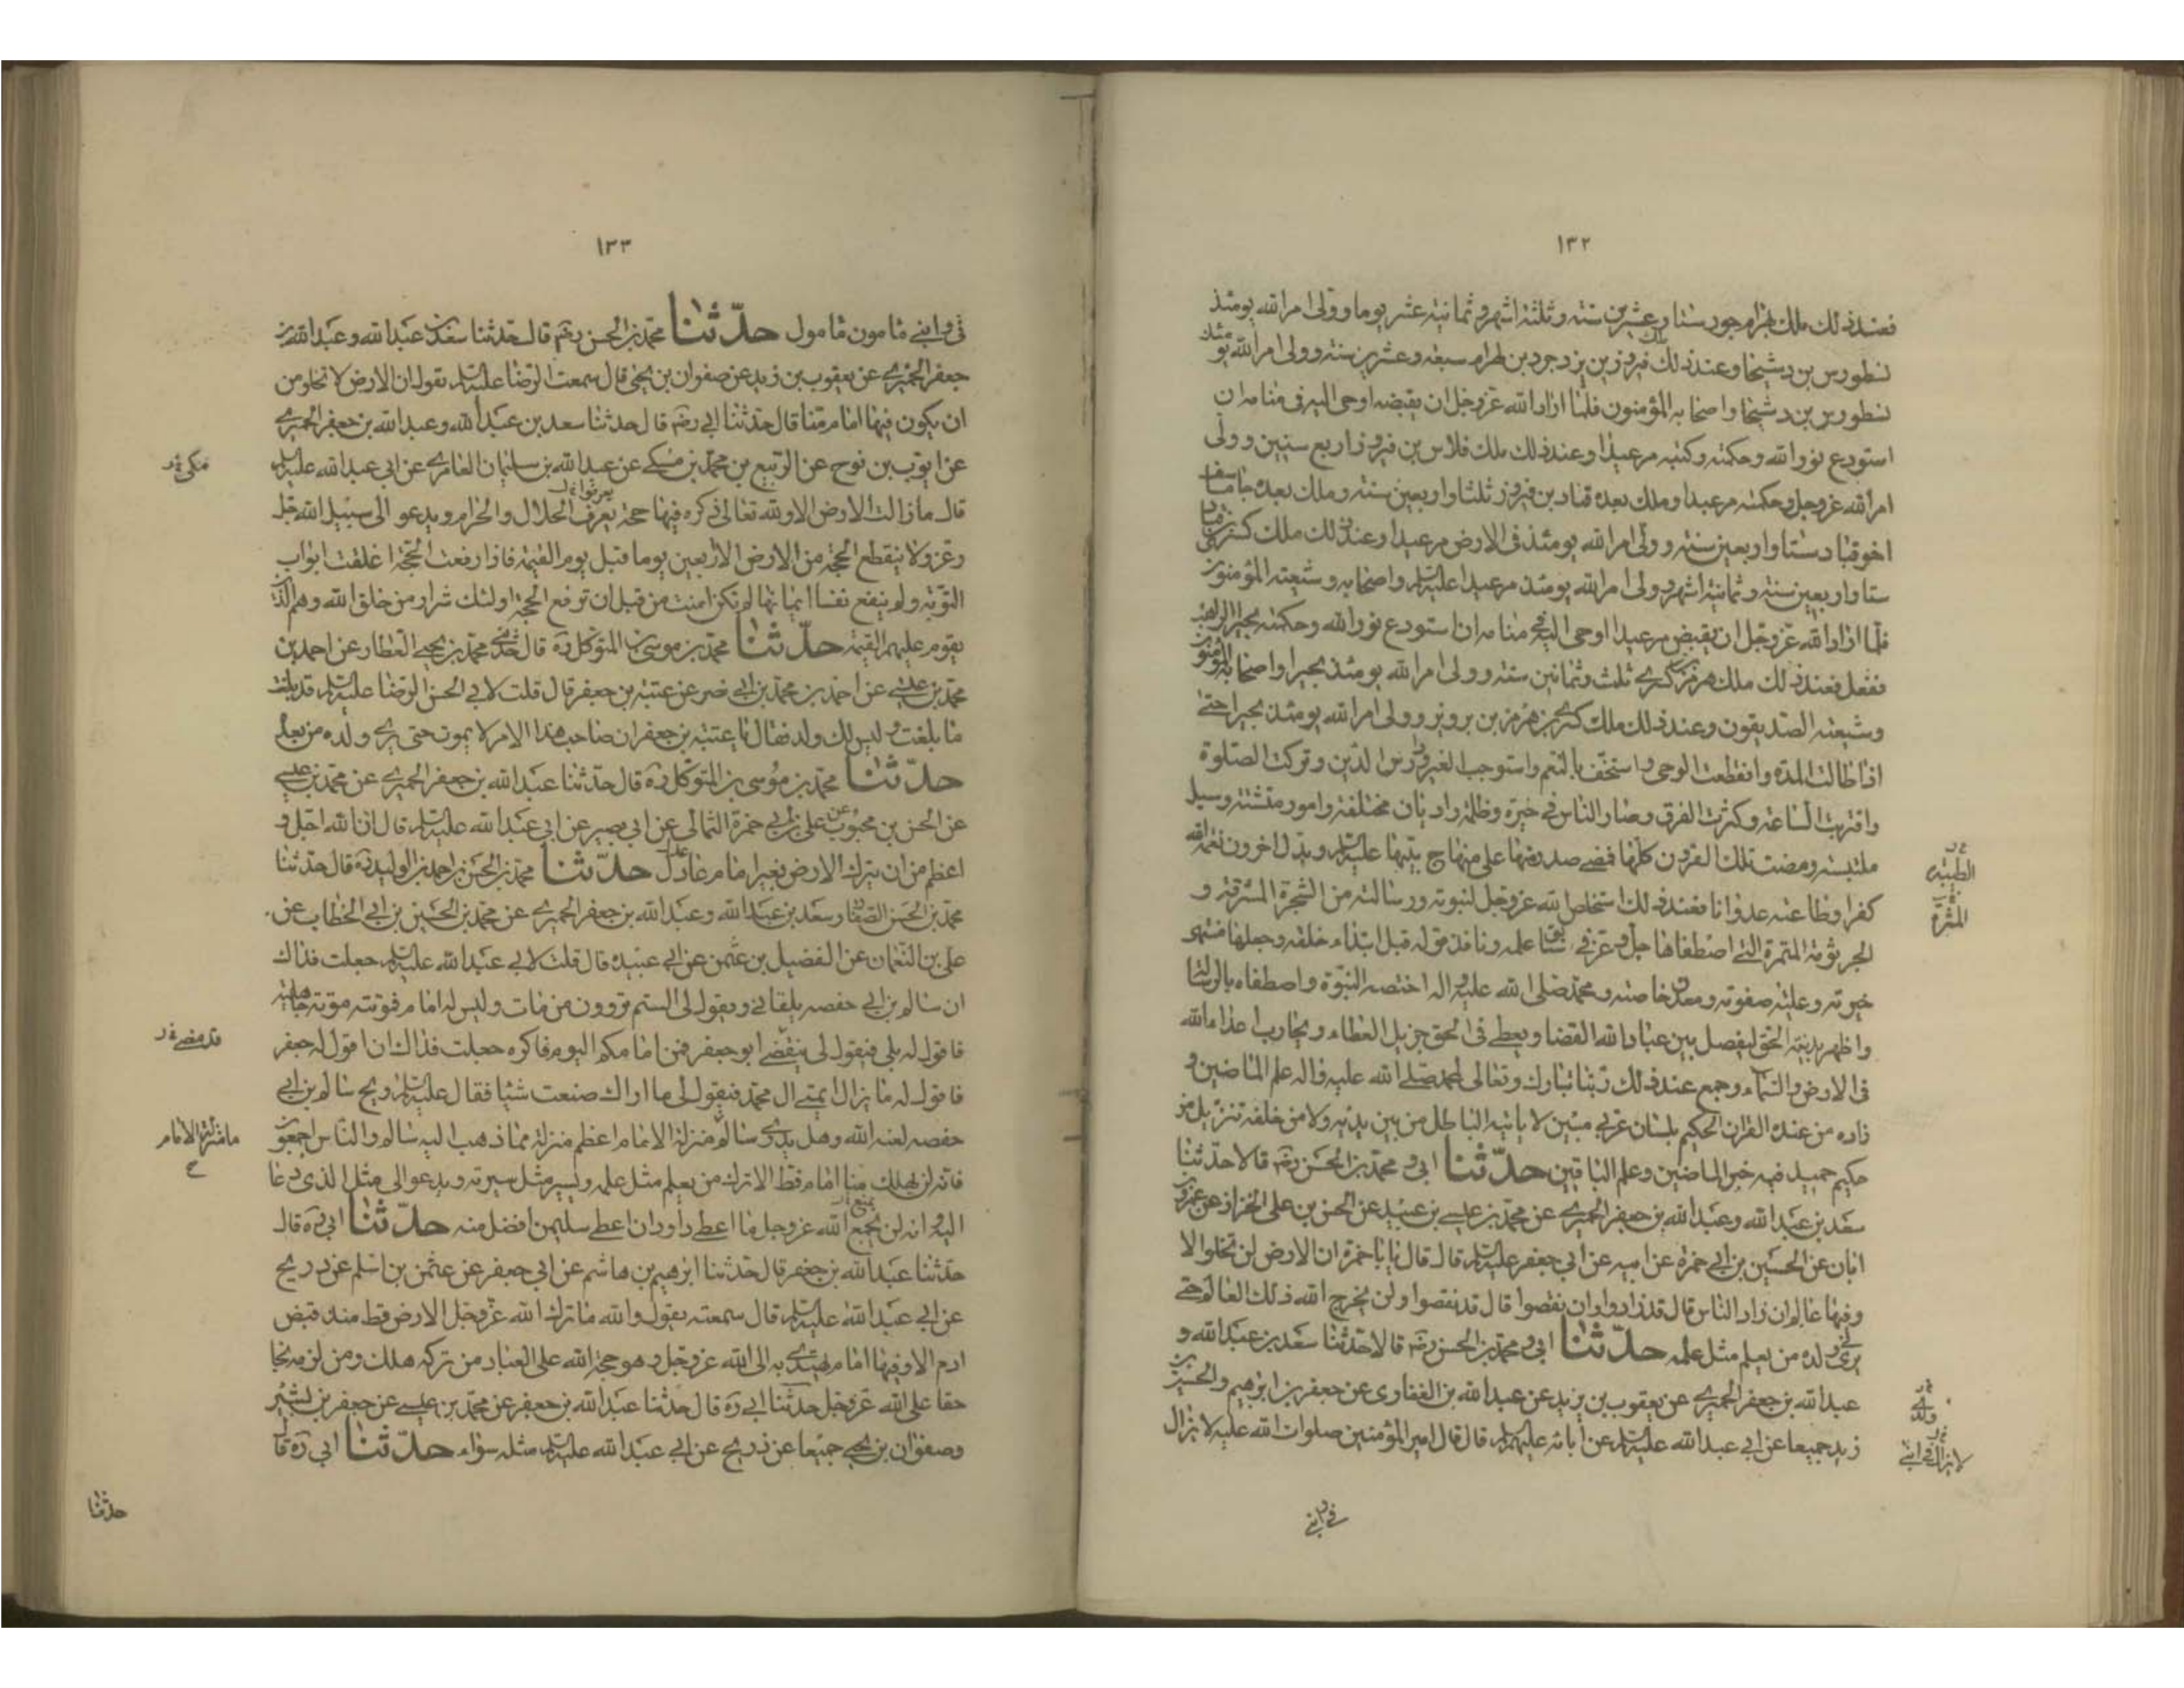 ١٣٢
فعند ذلك ملك بهرام جور ستا وعشرين سنة وثلثة اشهر وثمانية عشر يوما وولى امر الله يومئذ
نسطورس بن دشيخا وعند ذلك ملك فيروز بن يزدجرد بن بهرام سبعة وعشرين سنة وولى امر الله يومئذ
نسطورس بن دشيخا واصحابه المؤمنون فلما اراد الله عز وجل ان يقبضه اوحى اليه في منامه ان
استودع نور الله وحكمته وكتبه مرعيدا وعند ذلك ملك فلاس بن فيروز اربع سنين وولى
امر الله عز وجل وحكمته مرعيدا وملك بعده قباد بن فيروز ثلثا واربعين سنة وملك بعده جاماسف
اخو قباد ستا واربعين سنة وولى امر الله يومئذ في الارض مرعيدا وعند ذلك ملك كسرى بن قباد
ستا واربعين سنة وثمانية اشهر وولى امر الله يومئذ مرعيدا عليه السلم واصحابه وشيعته المؤمنون
فلما اراد الله عز وجل ان يقبض مرعيدا اوحى اليه في منامه ان استودع نور الله وحكمته بحيرا الراهب
ففعل فعند ذلك ملك هرمز بن كسرى ثلث وثمانين سنة وولى امر الله يومئذ بحيرا واصحابه المؤمنون
وشيعته الصديقون وعند ذلك ملك كسرى بن هرمز بن برويز وولى امر الله يومئذ بحيرا حتى
اذا طالت المدة وانقطعت الوحى واستخف بالنعم واستوجب الغير ودرس الدين وتركت الصلوة
واقتربت الساعة وكثرت الفرق وصار الناس في حيرة وظلمة واديان مختلفة وامور متشتتة وسبل
ملتبسة ومضت تلك القرون كلها فمضى صدر منها على منهاج نبيها عليه السلم وبدل اخرون نعمة الله
كفرا وطاعته عدوانا فعند ذلك استخلص الله عز وجل لنبوته ورسالته من الشجرة المشرقة و
الطيبة خ ر
المثمرة خ
الجرثومة المتمرة التي اصطفاها جل وعز في سابق علمه ونافذ قوله قبل ابتداء خلقه وجعلها منتهى
خيرته وعلية صفوته ومعدن خاصته ومحمد صلى الله عليه واله اختصه النبوة واصطفاه بالرسالة
واظهر بدينه الحق ليفصل بين عباد الله القضا ويعطي في الحق جزيل العطاء ويحارب اعداء الله
في الارض والسماء وجمع عند ذلك ربنا تبارك وتعالى لمحمد صلى الله عليه واله علم الماضين و
زاده من عنده القران الحكيم بلسان عربي مبين لا ياتيه الباطل من بين يديه ولا من خلفه تنزيل من
حكيم حميد فيه خبر الماضين وعلم الباقين حدثنا ابي ومحمد بن الحسن رضه قالا حدثنا
سعد بن عبد الله وعبد الله بن جعفر الحميري عن محمد بن عيسى بن عبيد عن الحسن بن على الخزاز عن عمرو بن
ابان عن الحسين بن ابي حمزة عن ابيه عن ابي جعفر عليه السلم قال قال يا با حمزة ان الارض لن تخلوا الا
وفيها عالم ان زاد الناس قال قد زادوا وان نقصوا قال قد نقصوا ولن يخرج الله ذلك العالم حتى
يرى في ولده من يعلم مثل علمه حدثنا ابي ومحمد بن الحسن رضه قالا حدثنا سعد بن عبد الله و
عبد الله بن جعفر الحميري عن يعقوب بن يزيد عن عبد الله بن الغفارى عن جعفر بن ابرهيم والحسين بن
ولدى خ ر
زيد جميعا عن ابي عبد الله عليه السلم عن ابائه عليهم السلم قال قال امير المؤمنين صلوات الله عليه لا يزال
لا يزال في ابني خ ر
في ولدى
١٣٣
في ولدى مامون مامول حدثنا محمد بن الحسن رضه قال حدثنا سعد بن عبد الله وعبد الله بن
جعفر الحميري عن يعقوب بن زيد عن صفوان بن يحيى قال سمعت الرضا عليه السلم يقول ان الارض لا تخلو من
ان يكون فيها امام منا قال حدثنا ابي رضه قال حدثنا سعد بن عبد الله وعبد الله بن جعفر الحميري
عن ايوب بن نوح عن الربيع بن محمد بن مسكى عن عبد الله بن سليمان العامري عن ابي عبد الله عليه السلم
قال ما زالت الارض الا ولله تعالى ذكره فيها حجة يعرف الحلال والحرام ويدعو الى سبيل الله جل
وعز ولا ينقطع الحجة من الارض الا اربعين يوما قبل يوم القيمة فاذا رفعت الحجة اغلقت ابواب
التوبة ولم ينفع نفسا ايمانها لم تكن امنت من قبل ان ترفع الحجة اولئك شرار من خلق الله وهم الذين
يقوم عليهم القيمة حدثنا محمد بن موسى بن المتوكل ره قال حدثني محمد بن يحيى العطار عن احمد بن
محمد بن عيسى عن احمد بن محمد بن ابي نصر عن عتبة بن جعفر قال قلت لابي الحسن الرضا عليه السلم قد بلغت
ما بلغت وليس لك ولد فقال يا عتبة بن جعفر ان صاحب هذا الامر لا يموت حتى يرى ولده من بعده
حدثنا محمد بن موسى بن المتوكل ره قال حدثنا عبد الله بن جعفر الحميري عن محمد بن عيسى
عن الحسن بن محبوب عن على بن ابي حمزة الثمالى عن ابي بصير عن ابي عبد الله عليه السلم قال ان الله اجل و
اعظم من ان يترك الارض بغير امام عادل حدثنا محمد بن الحسن بن احمد بن الوليد ره قال حدثنا
محمد بن الحسن الصفار وسعد بن عبد الله وعبد الله بن جعفر الحميري عن محمد بن الحسين بن ابي الخطاب عن
على بن النعمان عن الفضيل بن عثمن عن ابي عبيده قال قلت لابي عبد الله عليه السلم جعلت فداك
ان سالم بن ابي حفصه يلقانى ويقول لى الستم تروون من مات وليس له امام فموتته موتة جاهلية
فاقول له بلى فيقول لى ينقضى ابو جعفر فمن امامكم اليوم فاكره جعلت فداك ان اقول له جعفر
قد مضى خ ر
فاقول له ما يزال ايمتى ال محمد فيقول لى ما اراك صنعت شيئا فقال عليه السلم ويح سالم بن ابي
حفصه لعنه الله وهل يدرى سالم منزلة الامام اعظم منزلة مما ذهب اليه سالم والناس اجمعون
ما منزلة الامام
فانه لن يهلك منا امام قط الا ترك من يعلم مثل علمه ويسير مثل سيرته ويدعو الى مثل الذى دعا
اليه وانه لن يجمع الله عز وجل ما اعطى داود ان اعطى سليمن افضل منه حدثنا ابي ره قال
حدثنا عبد الله بن جعفر قال حدثنا ابرهيم بن هاشم عن ابي جعفر عن عثمن بن اسلم عن ذريح
عن ابي عبد الله عليه السلم قال سمعته يقول والله ما ترك الله عز وجل الارض قط منذ قبض
ادم الا وفيها امام يهتدى به الى الله عز وجل وهو حجة الله على العباد من تركه هلك ومن لزمه نجا
حقا على الله عز وجل حدثنا ابي ره قال حدثنا عبد الله بن جعفر عن محمد بن عيسى عن جعفر بن بشير
وصفوان بن يحيى جميعا عن ذريح عن ابي عبد الله عليه السلم مثله سواء حدثنا ابي ره قال
حدثنا